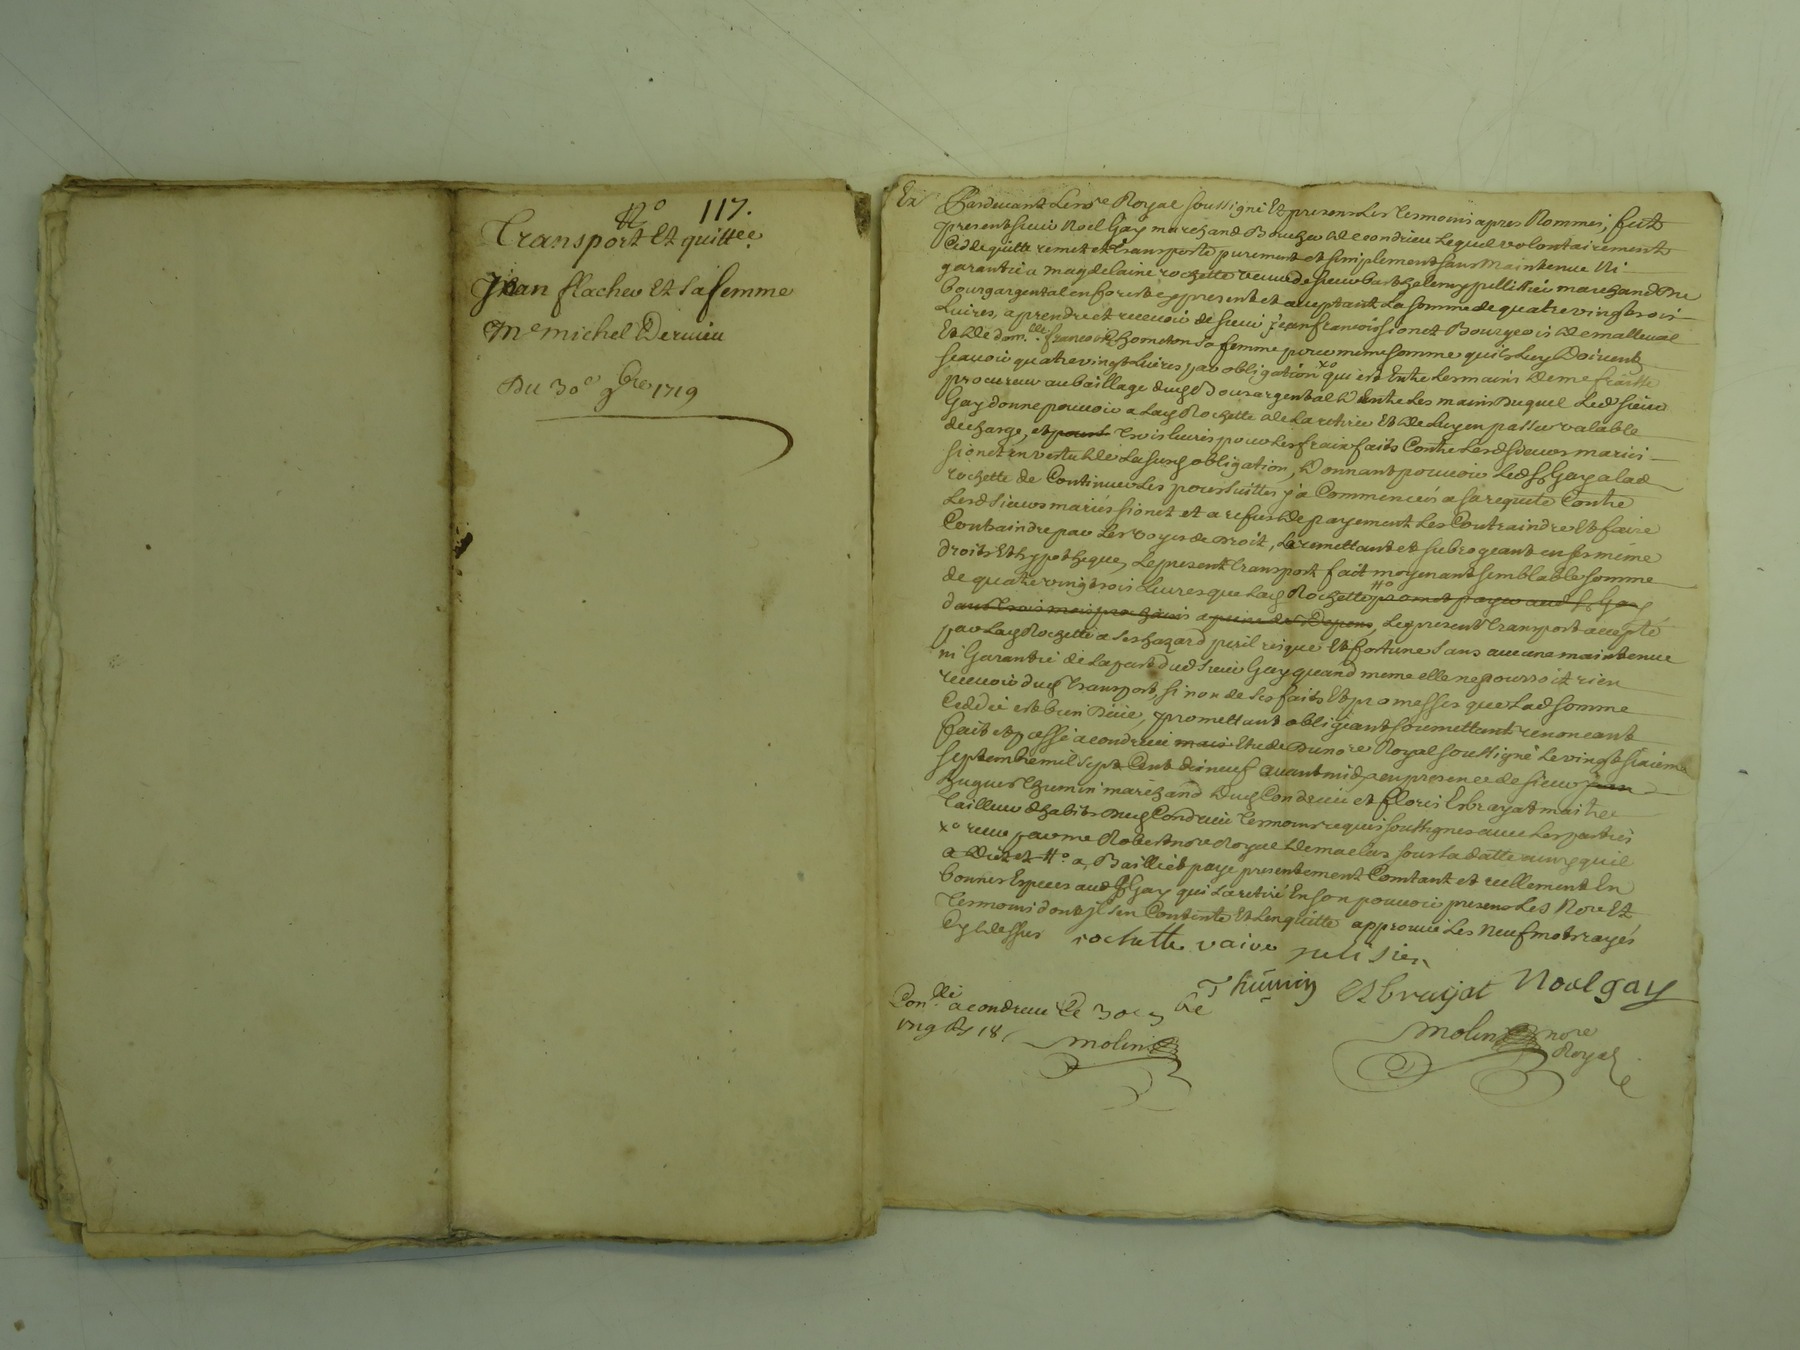 N° 117.
Transport Et quittee
Jean flacher Et Sa femme
Me michel Dervieu
Du 30e 9bre 1719
Ex
Pardevant Le nore Royal soussigné Et presens Les Tesmoins apres Nommes, fut
present sieur Noel Gay marchand Boucher de condrieu Lequel volontairement
Cede quitte remet et Transporte purement et simplement sans Maintenue Ni
garantie a magdelaine rochette veuve de sieur Barthelemy pellissier marchand Du
bourgargental en forest cy present et aceptant La somme de quatre vingt trois
Livres, a prendre et recevoir de sieur jean francois sionet Bourgeois de malleval
Et de dam.lle francoise Thometon Sa femme pour meme somme qu'ils Luy Doivent
scavoir quatre vingt Livres par obligation x° qui est Entre Les mains de me
procureur au baillage dud Bourgargental Entre Les mains Duquel Led sieur
Gay donne pouvoir a Lad Rochette de La retirer Et de Luy en passer valable
decharge, et pour Trois livres pour Les fraix faits Contre Lesd sieurs maries
sionet en vertu de La susd obligation, Donnant pouvoir Led sr Gay a lad
rochette de Continuer Les poursuittes ja Commencées a sa requete Contre
Lesd sieurs mariés sionet et a refus de payement Les Contraindre Et faire
Contraindre par Les voyes de Droit, La remettant et subrogeant en ses meme
droits Et hypotheque, Le present transport fait moyenant semblable somme
de quatre vingt trois Livres que Lad Rochette #° promet payer aud sr Gay
dans trois mois prochains a peine de Depens, Le present transport accepté
par Lad Rochette a ses hazard peril risque Et fortune Sans aucune maintenue
ni Garantie de La part dud sieur Gay quand meme elle ne pourroit rien
recevoir dud Transport, si non de ses faits Et promesses que Lad somme
Ceddée est bien Deüe, promettant obligeant soumettant renoncant
fait et passé a condrieu Etude Du nore Royal soussigné Le vingt sixieme
septembre mil sept Cent dix neuf avant midy en presence de sieur jean
hugues Thumin marchand dud Condrieu et floris Esbrayat maitre
Tailleur d'habits Dud Condrieu Tesmoins requis soussignes avec Les parties
x° receue par me Robert nore Royal de maclas sous La datte
a Diet et #° a Baillé et paye presentement Comtant et reellement En
bonnes Especes aud Sr Gay qui La retiré En son pouvoir presens Les Nore Et
Tesmoins dont jl s'en Contente Et L'en quitte approuvé Les neuf mots rayés
Cy dessus rochette vaive pelisier
Thumin Esbrayat Noel gay
Con.llé a condrieu Le 30e 7bre
1719 18s
molin
molin nore
Royal